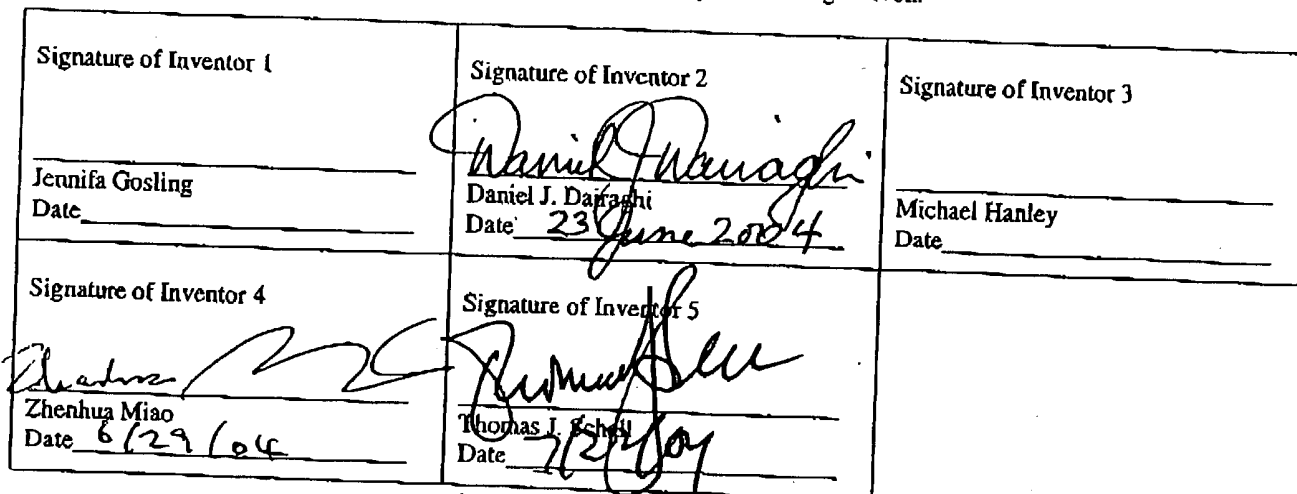 Signature of Inventor 1
Jennifa Gosling
Date
Signature of Inventor 2
Daniel J. Dairaghi
Date 23 June 2004
Signature of Inventor 3
Michael Hanley
Date
Signature of Inventor 4
Zhenhua Miao
Date 6/29/04
Signature of Inventor 5
Thomas J. Schall
Date